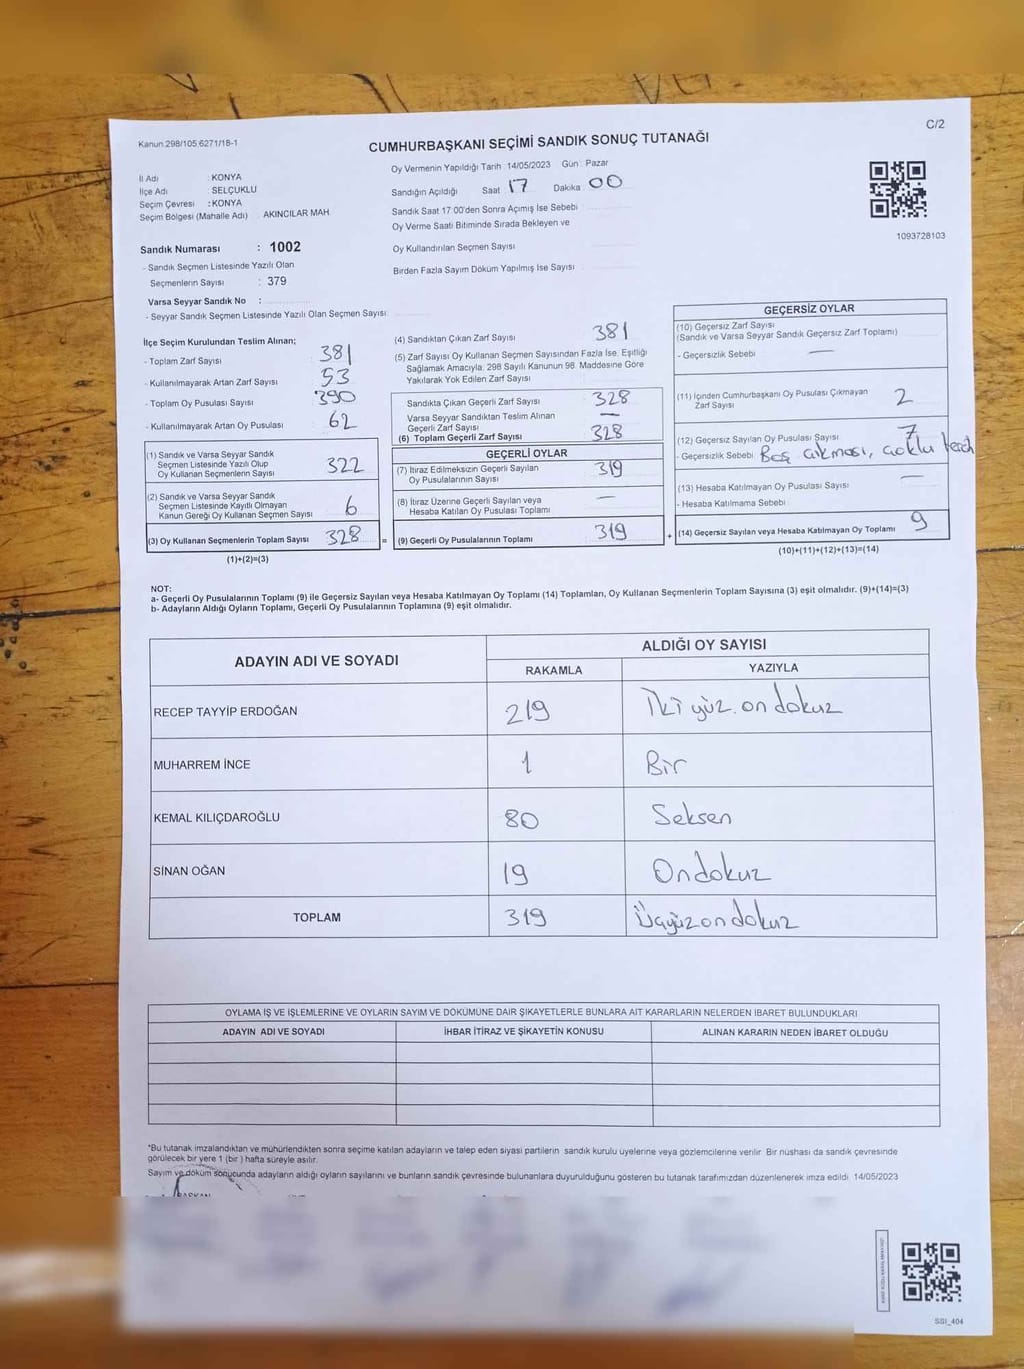 C/2
Kanun.298/105,6271/18-1
CUMHURBAŞKANI SEÇİMİ SANDIK SONUÇ TUTANAĞI
İl Adı : KONYA
İlçe Adı : SELÇUKLU
Seçim Çevresi : KONYA
Seçim Bölgesi (Mahalle Adı) AKINCILAR MAH.
Sandık Numarası : 1002
- Sandık Seçmen Listesinde Yazılı Olan
Seçmenlerin Sayısı : 379
Varsa Seyyar Sandık No :
- Seyyar Sandık Seçmen Listesinde Yazılı Olan Seçmen Sayısı:
Oy Vermenin Yapıldığı Tarih :14/05/2023 Gün : Pazar
Sandığın Açıldığı Saat 17 Dakika 00
Sandık Saat 17 00'den Sonra Açımış İse Sebebi
Oy Verme Saati Bitiminde Sırada Bekleyen ve
Oy Kullandırılan Seçmen Sayısı
Birden Fazla Sayım Döküm Yapılmış İse Sayısı
1093728103
İlçe Seçim Kurulundan Teslim Alınan;
- Toplam Zarf Sayısı 381
- Kullanılmayarak Artan Zarf Sayısı 53
- Toplam Oy Pusulası Sayısı 390
- Kullanılmayarak Artan Oy Pusulası 62
(1) Sandık ve Varsa Seyyar Sandık
Seçmen Listesinde Yazılı Olup
Oy Kullanan Seçmenlerin Sayısı 322
(2) Sandık ve Varsa Seyyar Sandık
Seçmen Listesinde Kayıtlı Olmayan
Kanun Gereği Oy Kullanan Seçmen Sayısı 6
(3) Oy Kullanan Seçmenlerin Toplam Sayısı 328
(1)+(2)=(3)
(4) Sandıktan Çıkan Zarf Sayısı 381
(5) Zarf Sayısı Oy Kullanan Seçmen Sayısından Fazla İse, Eşitliği
Sağlamak Amacıyla, 298 Sayılı Kanunun 98. Maddesine Göre
Yakılarak Yok Edilen Zarf Sayısı
Sandıkta Çıkan Geçerli Zarf Sayısı 328
Varsa Seyyar Sandıktan Teslim Alınan
Geçerli Zarf Sayısı —
(6) Toplam Geçerli Zarf Sayısı 328
GEÇERLİ OYLAR
(7) İtiraz Edilmeksizin Geçerli Sayılan
Oy Pusulasının Sayısı 319
(8) İtiraz Üzerine Geçerli Sayılan veya
Hesaba Katılan Oy Pusulası Toplamı —
= (9) Geçerli Oy Pusulalarının Toplamı 319
GEÇERSİZ OYLAR
(10) Geçersiz Zarf Sayısı
(Sandık ve Varsa Seyyar Sandık Geçersiz Zarf Toplamı)
- Geçersizlik Sebebi —
(11) İçinden Cumhurbaşkanı Oy Pusulası Çıkmayan
Zarf Sayısı 2
(12) Geçersiz Sayılan Oy Pusulası Sayısı 7
- Geçersizlik Sebebi Boş çıkması, çoklu
(13) Hesaba Katılmayan Oy Pusulası Sayısı —
- Hesaba Katılmama Sebebi
+ (14) Geçersiz Sayılan veya Hesaba Katılmayan Oy Toplamı 9
(10)+(11)+(12)+(13)=(14)
NOT:
a- Geçerli Oy Pusulalarının Toplamı (9) ile Geçersiz Sayılan veya Hesaba Katılmayan Oy Toplamı (14) Toplamları, Oy Kullanan Seçmenlerin Toplam Sayısına (3) eşit olmalıdır. (9)+(14)=(3)
b- Adayların Aldığı Oyların Toplamı, Geçerli Oy Pusulalarının Toplamına (9) eşit olmalıdır.
ADAYIN ADI VE SOYADI ALDIĞI OY SAYISI
RAKAMLA YAZIYLA
RECEP TAYYİP ERDOĞAN 219 İki yüz. on dokuz
MUHARREM İNCE 1 Bir
KEMAL KILIÇDAROĞLU 80 Seksen
SİNAN OĞAN 19 Ondokuz
TOPLAM 319 Üçyüzondokuz
OYLAMA İŞ VE İŞLEMLERİNE VE OYLARIN SAYIM VE DÖKÜMÜNE DAİR ŞİKAYETLERLE BUNLARA AİT KARARLARIN NELERDEN İBARET BULUNDUKLARI
ADAYIN ADI VE SOYADI İHBAR İTİRAZ VE ŞİKAYETİN KONUSU ALINAN KARARIN NEDEN İBARET OLDUĞU
*Bu tutanak imzalandıktan ve mühürlendikten sonra seçime katılan adayların ve talep eden siyasi partilerin sandık kurulu üyelerine veya gözlemcilerine verilir. Bir nüshası da sandık çevresinde
görülecek bir yere 1 (bir ) hafta süreyle asılır.
Sayım ve döküm sonucunda adayların aldığı oyların sayılarını ve bunların sandık çevresinde bulunanlara duyurulduğunu gösteren bu tutanak tarafımızdan düzenlenerek imza edildi. 14/05/2023
BAŞKAN
SSI_404